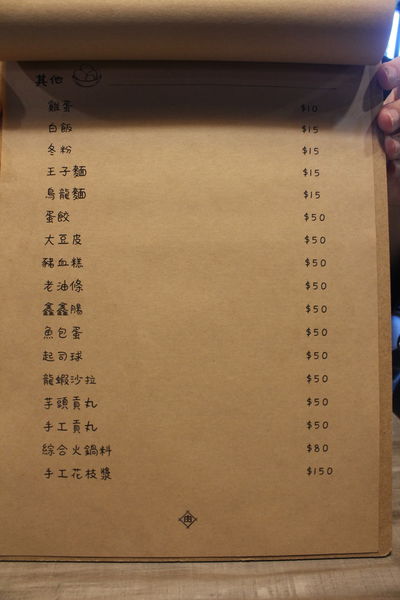 其他
雞蛋 $10
白飯 $15
冬粉 $15
王子麵 $15
烏龍麵 $15
蛋餃 $50
大豆皮 $50
豬血糕 $50
老油條 $50
鑫鑫腸 $50
魚包蛋 $50
起司球 $50
龍蝦沙拉 $50
芋頭貢丸 $50
手工貢丸 $50
綜合火鍋料 $80
手工花枝漿 $150